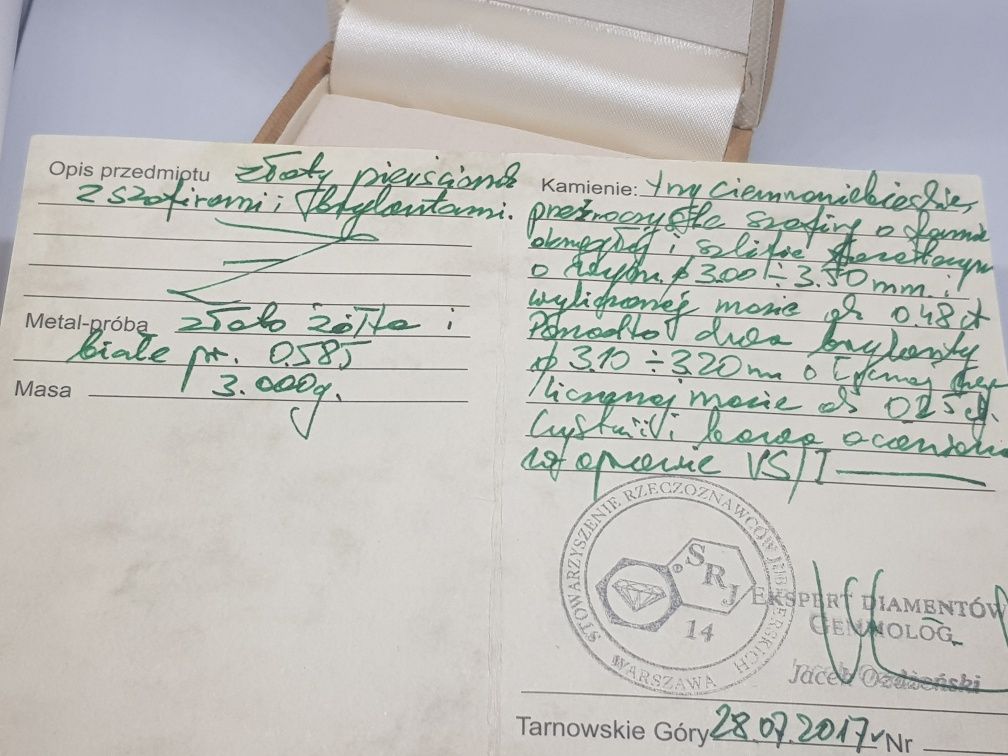 Opis przedmiptu złoty pierścionek
z szafirami i brylantami.
Metal-próba złoto żółte i
białe pr. 0.585
Masa 3.000g.
Kamienie: trzy ciemnoniebieskie,
przeźroczyste szafiry o formie
okrągłej i szlifie fasetowym
o ø 3.00 ÷ 3.50 mm. i
wyliczonej masie ok 0.48 ct
Ponadto dwa brylanty
ø 3.10 ÷ 3.20 mm o łącznej
liczonej masie ok 0.25 ct
Czystość i barwa oceniona
w oprawie VS/I
STOWARZYSZENIE RZECZOZNAWCÓW JUBILERSKICH
WARSZAWA
SRJ
14
EKSPERT DIAMENTÓW
GEMMOLOG
Jacek Ozdżeński
Tarnowskie Góry 28.07.2017 Nr